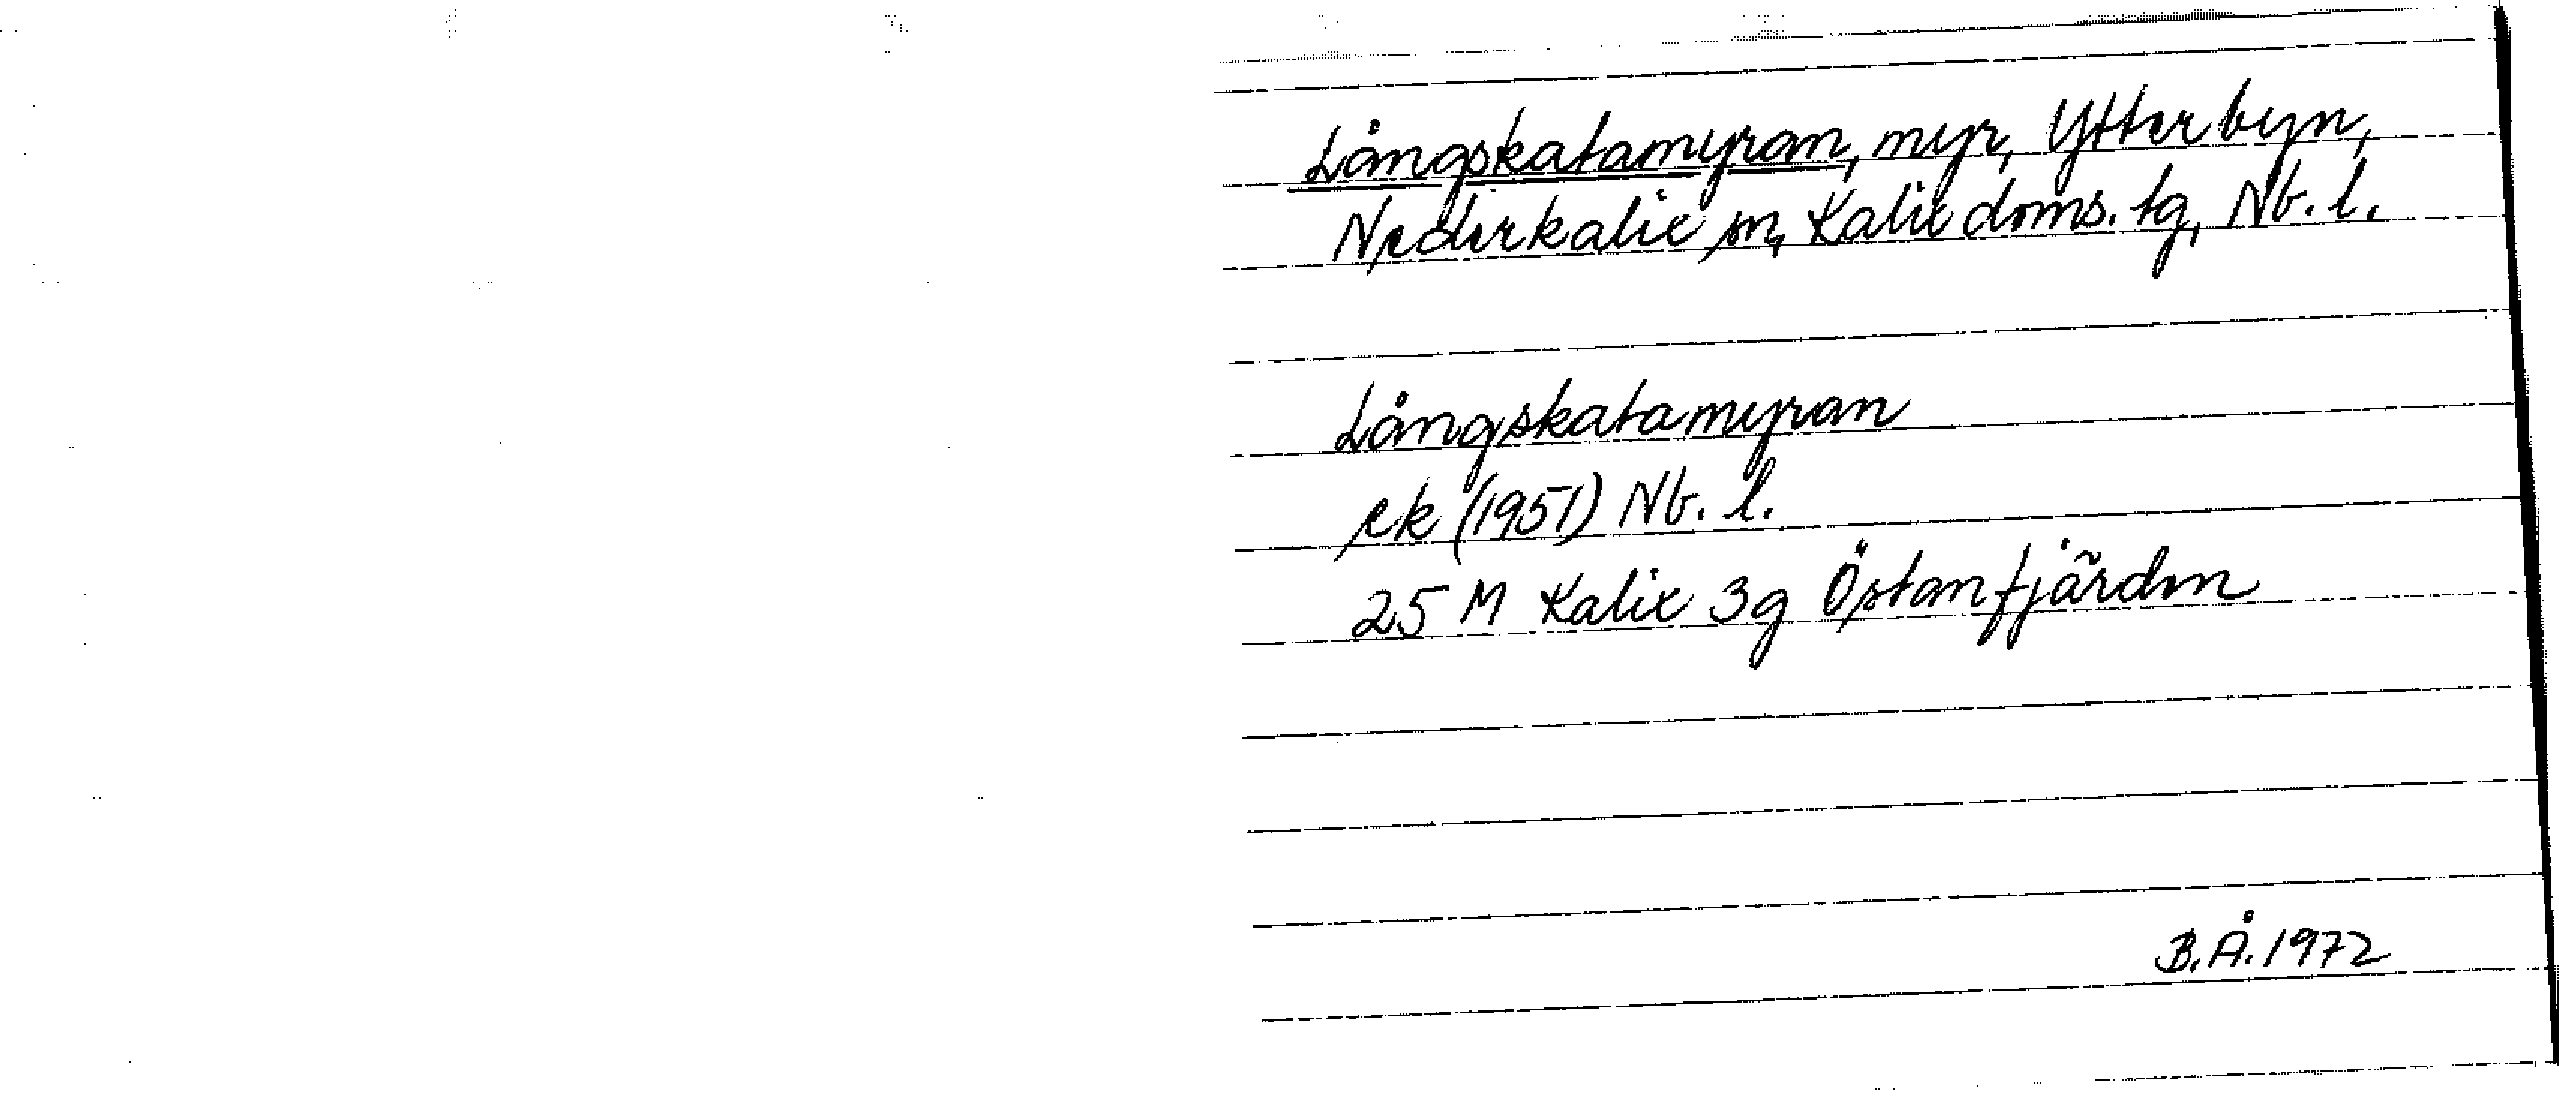 Långskatamyran, myr, Ytterbyn,
Nederkalix sn, Kalix doms. tg, Nb. l.
Långskatamyran
ek (1951) Nb. l.
25 M Kalix 3g Östanfjärden
B.Å. 1972